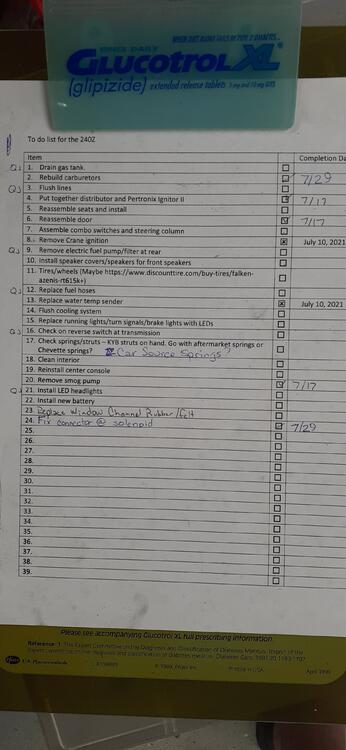 WHEN DIET ALONE FAILS IN TYPE 2 DIABETES...
ONCE DAILY
GLUCOTROL XL®
(glipizide) extended release tablets 5 mg and 10 mg GITS
To do list for the 240Z
Item Completion Da
1. Drain gas tank.
2. Rebuild carburetors 7/29
3. Flush lines
4. Put together distributor and Pertronix Ignitor II 7/17
5. Reassemble seats and install
6. Reassemble door 7/17
7. Assemble combo switches and steering column
8. Remove Crane ignition July 10, 2021
9. Remove electric fuel pump/filter at rear
10. Install speaker covers/speakers for front speakers
11. Tires/wheels (Maybe https://www.discounttire.com/buy-tires/falken-
azenis-rt615k+)
12. Replace fuel hoses
13. Replace water temp sender July 10, 2021
14. Flush cooling system
15. Replace running lights/turn signals/brake lights with LEDs
16. Check on reverse switch at transmission
17. Check springs/struts – KYB struts on hand. Go with aftermarket springs or
Chevette springs? Car Source Springs?
18. Clean interior
19. Reinstall center console
20. Remove smog pump 7/17
21. Install LED headlights
22. Install new battery
23. Replace Window Channel Rubber/felt
24. Fix connector @ solenoid 7/29
25.
26.
27.
28.
29.
30.
31.
32.
33.
34.
35.
36.
37.
38.
39.
Please see accompanying Glucotrol XL full prescribing information.
Reference: 1. The Expert Committee on the Diagnosis and Classification of Diabetes Mellitus. Report of the
Expert Committee on the diagnosis and classification of diabetes mellitus. Diabetes Care. 1997;20:1183-1197.
Pfizer U.S. Pharmaceuticals © 1999, Pfizer Inc Printed in USA April 1999